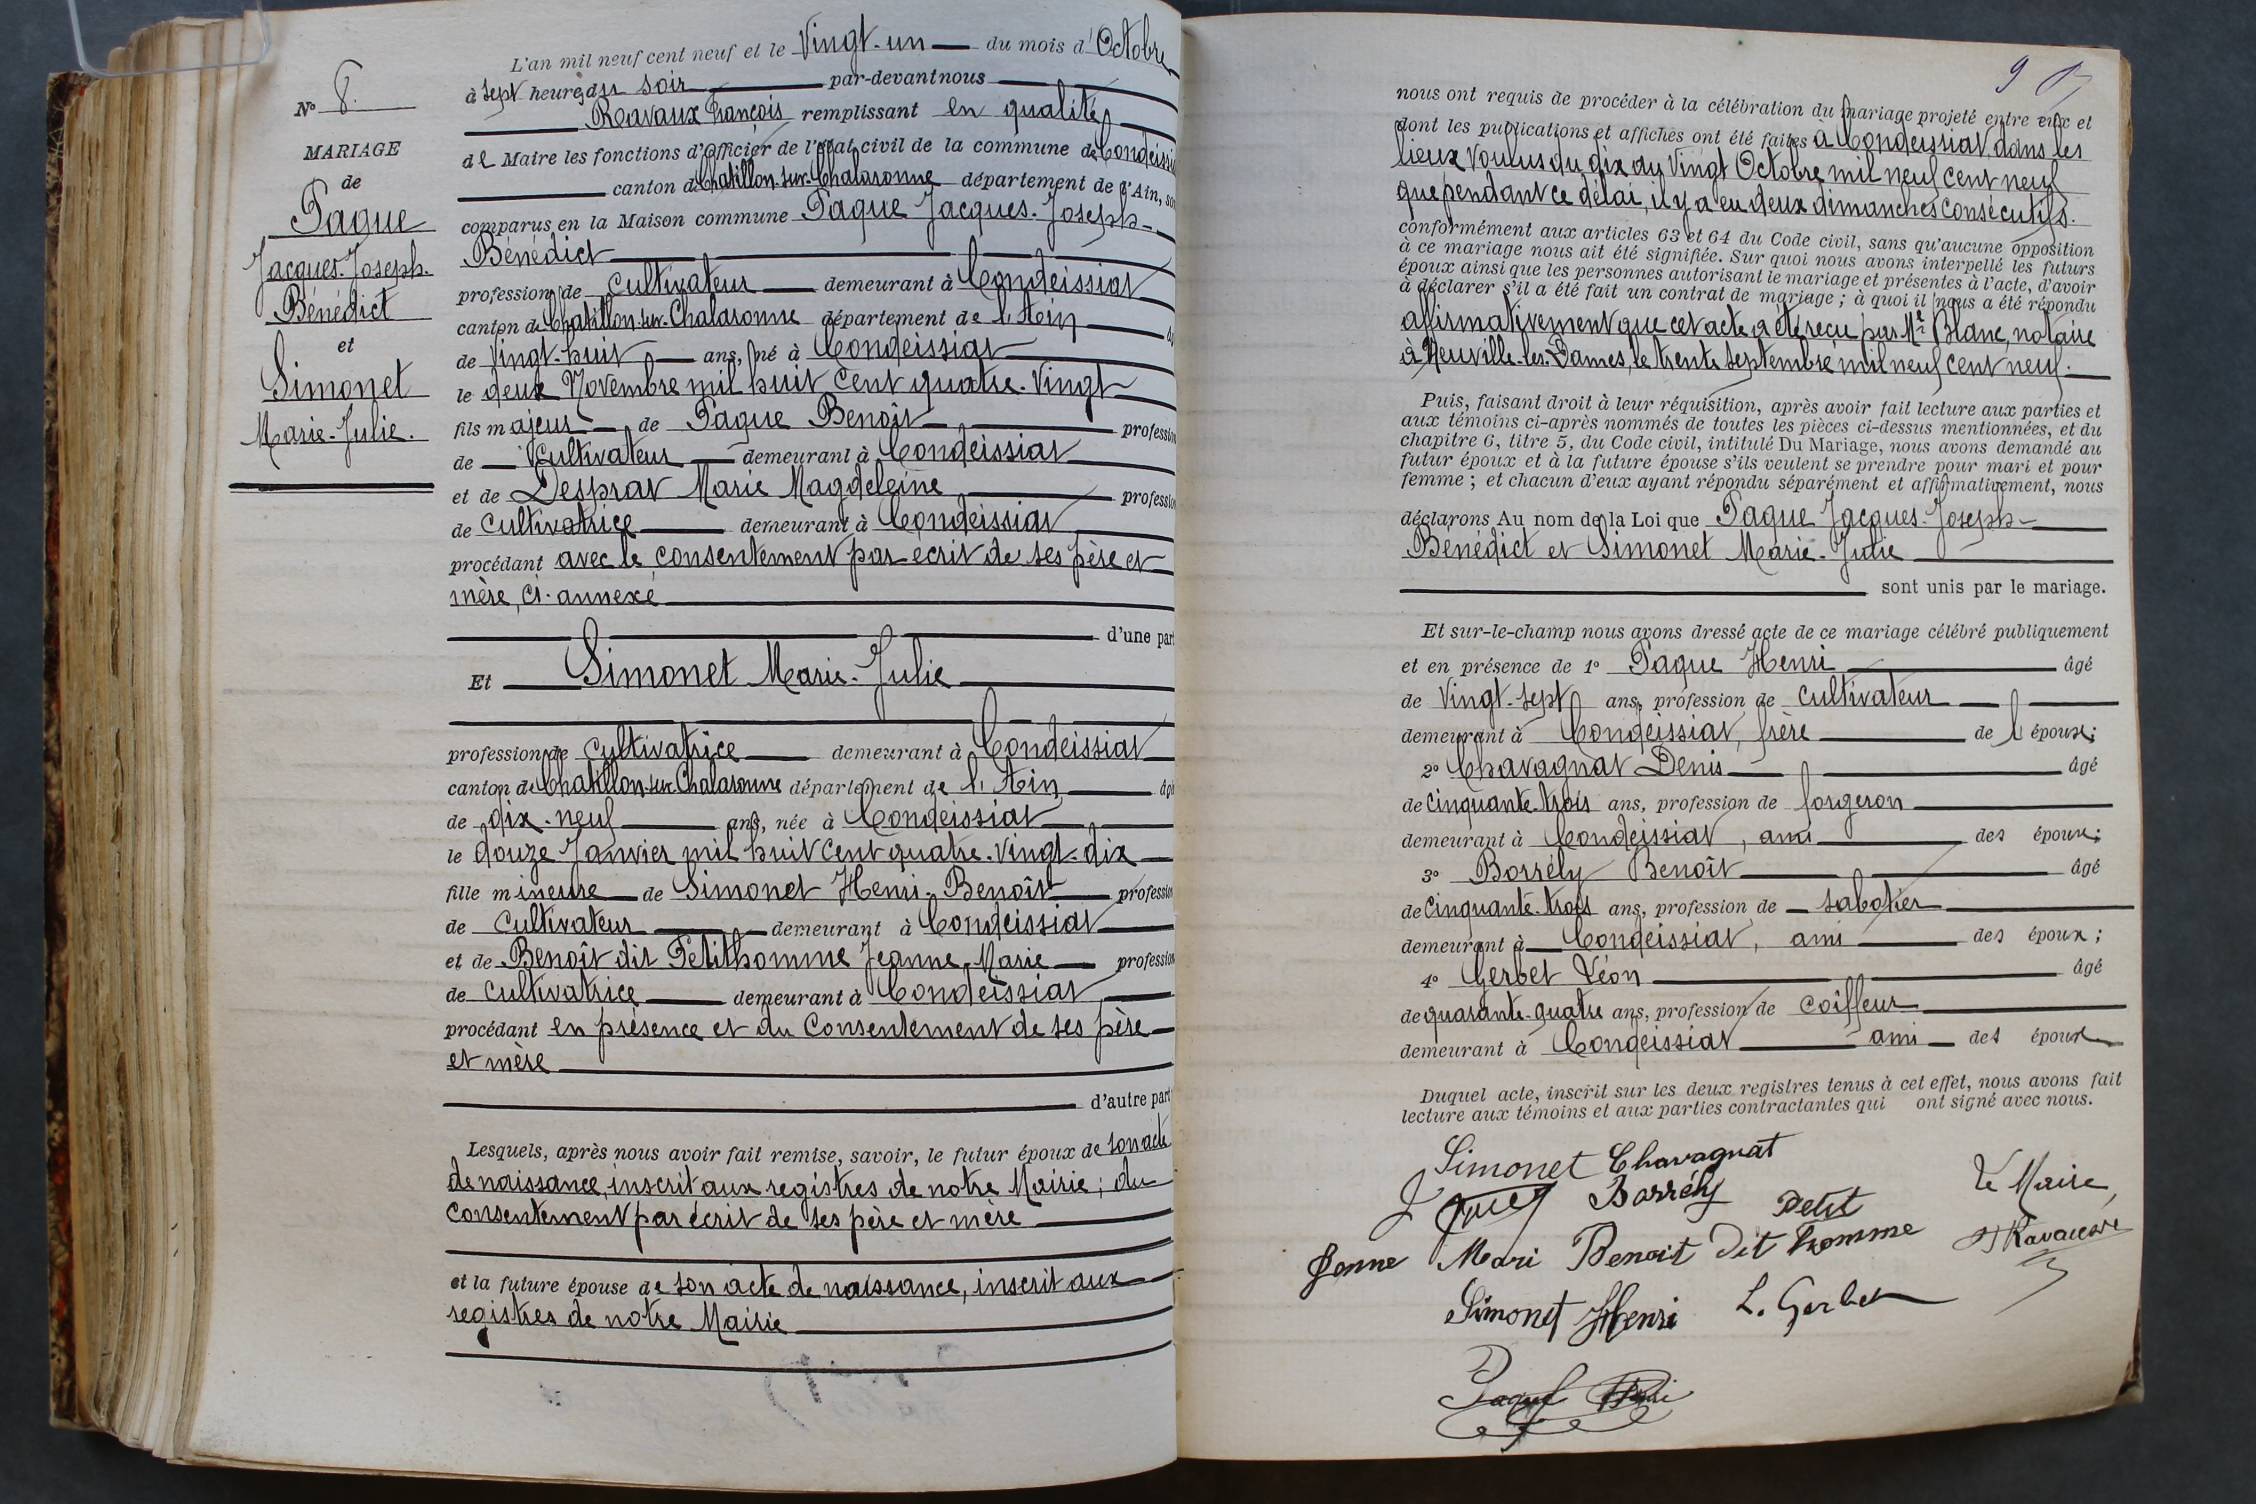 N° 8.
MARIAGE
de
Paque
Jacques-Joseph-
Bénédict
et
Simonet
Marie-Julie.
L'an mil neuf cent neuf et le Vingt-un du mois d'Octobre
à sept heures du soir par-devant nous
Ravaux François remplissant en qualité
de Maire les fonctions d'officier de l'état civil de la commune de Condeissiat
canton de Chatillon-sur-Chalaronne département de l'Ain, sont
comparus en la Maison commune Paque Jacques-Joseph-
Bénédict
profession de cultivateur demeurant à Condeissiat
canton de Chatillon-sur-Chalaronne département de l'Ain âgé
de vingt-huit ans, né à Condeissiat
le deux Novembre mil huit cent quatre-vingt
fils majeur de Paque Benoît profession
de Cultivateur demeurant à Condeissiat
et de Desprat Marie Magdeleine profession
de cultivatrice demeurant à Condeissiat
procédant avec le consentement par écrit de ses père et
mère, ci-annexé
d'une part
Et Simonet Marie-Julie
profession de cultivatrice demeurant à Condeissiat
canton de Chatillon-sur-Chalaronne département de l'Ain âgé
de dix-neuf ans, née à Condeissiat
le douze Janvier mil huit cent quatre-vingt-dix
fille mineure de Simonet Henri-Benoît profession
de cultivateur demeurant à Condeissiat
et de Benoît dit Petithomme Jeanne-Marie profession
de cultivatrice demeurant à Condeissiat
procédant en présence et du consentement de ses père
et mère
d'autre part
Lesquels, après nous avoir fait remise, savoir, le futur époux de son acte
de naissance, inscrit aux registres de notre Mairie; du
consentement par écrit de ses père et mère
et la future épouse de son acte de naissance, inscrit aux
registres de notre Mairie
9
nous ont requis de procéder à la célébration du mariage projeté entre eux et
dont les publications et affiches ont été faites à Condeissiat, dans les
lieux voulus du dix au vingt Octobre mil neuf cent neuf
que pendant ce délai, il y a eu deux dimanches consécutifs.
conformément aux articles 63 et 64 du Code civil, sans qu'aucune opposition
à ce mariage nous ait été signifiée. Sur quoi nous avons interpellé les futurs
époux ainsi que les personnes autorisant le mariage et présentes à l'acte, d'avoir
à déclarer s'il a été fait un contrat de mariage; à quoi il nous a été répondu
affirmativement que cet acte a été reçu par Me Blanc, notaire
à Neuville-les-Dames, le trente septembre mil neuf cent neuf.
Puis, faisant droit à leur réquisition, après avoir fait lecture aux parties et
aux témoins ci-après nommés de toutes les pièces ci-dessus mentionnées, et du
chapitre 6, titre 5, du Code civil, intitulé Du Mariage, nous avons demandé au
futur époux et à la future épouse s'ils veulent se prendre pour mari et pour
femme; et chacun d'eux ayant répondu séparément et affirmativement, nous
déclarons Au nom de la Loi que Paque Jacques-Joseph-
Bénédict et Simonet Marie-Julie
sont unis par le mariage.
Et sur-le-champ nous avons dressé acte de ce mariage célébré publiquement
et en présence de 1° Paque Henri âgé
de vingt-sept ans, profession de cultivateur
demeurant à Condeissiat, frère de l'époux;
2° Chavagnat Denis âgé
de cinquante-trois ans, profession de forgeron
demeurant à Condeissiat, ami des époux;
3° Borrély Benoît âgé
de cinquante-trois ans, profession de sabotier
demeurant à Condeissiat, ami des époux;
4° Gerbet Léon âgé
de quarante-quatre ans, profession de coiffeur
demeurant à Condeissiat ami des époux
Duquel acte, inscrit sur les deux registres tenus à cet effet, nous avons fait
lecture aux témoins et aux parties contractantes qui ont signé avec nous.
Simonet Chavagnat
Borrély Petit Le Maire,
Jenne Mari Benoit dit homme
Simonet Henri L. Gerbet